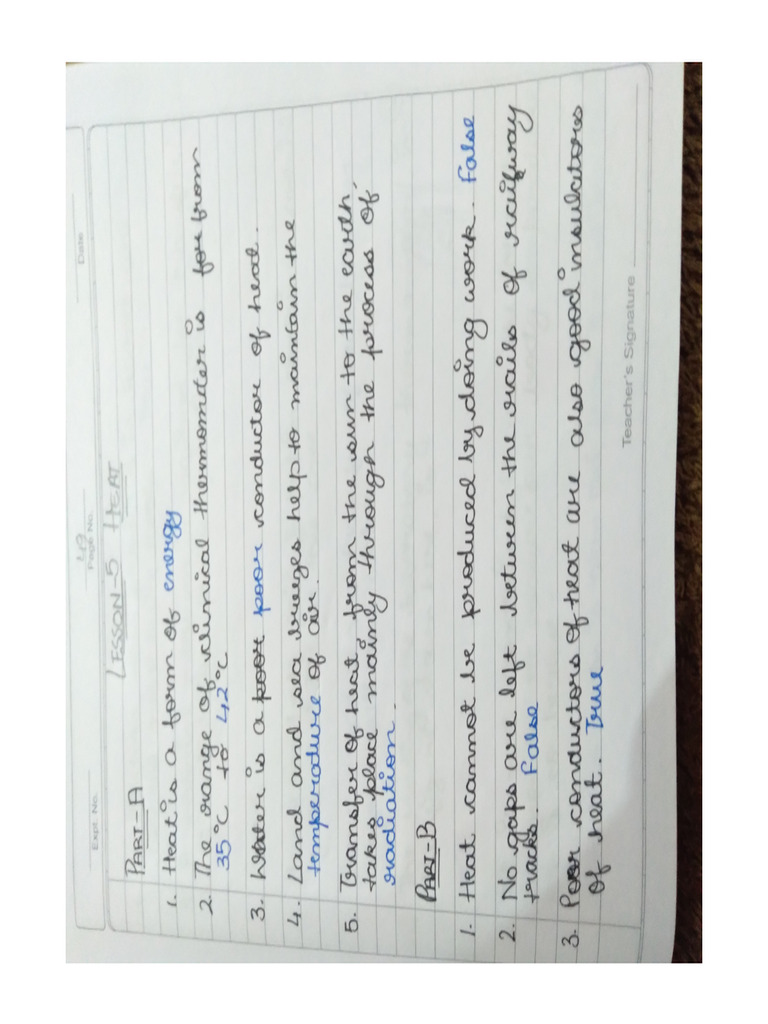 Expt. No.
Page No. 49
Date
LESSON-5 HEAT
PART-A
1. Heat is a form of energy
2. The range of clinical thermometer is for from
35°C to 42°C
3. Water is a poor poor conductor of heat.
4. Land and sea breezes help to maintain the
temperature of air.
5. Transfer of heat from the sun to the earth
takes place mainly through the process of
radiation.
PART-B
1. Heat cannot be produced by doing work. False
2. No gaps are left between the rails of railway
tracks. False
3. Poor conductors of heat are also good insulators
of heat. True
Teacher's Signature